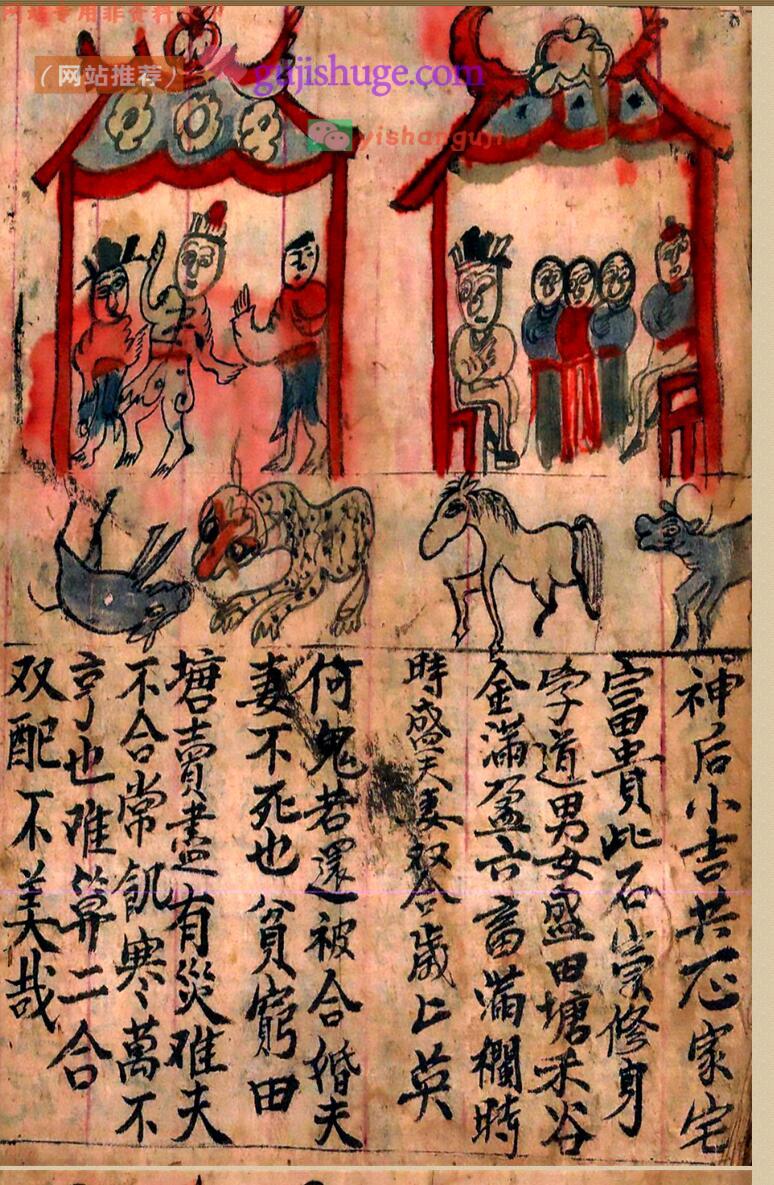 网站专用非资料
（网站推荐）
gujishuge.com
yishanguji
神后小吉共一位家宅
富貴此石崇修身
字道男女盛田塘禾谷
金滿盈六畜滿欄時
時盛夫妻双合歲上英
何鬼若還被合婚夫
妻不死也貧窮田
塘賣盡有災难夫
不合常飢寒萬不
亨也难算二合
双配不美哉